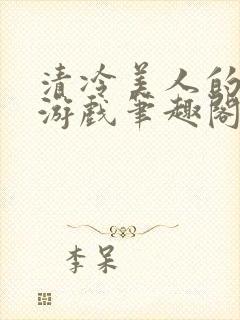 清冷美人的
游戏笔趣阁
李呆